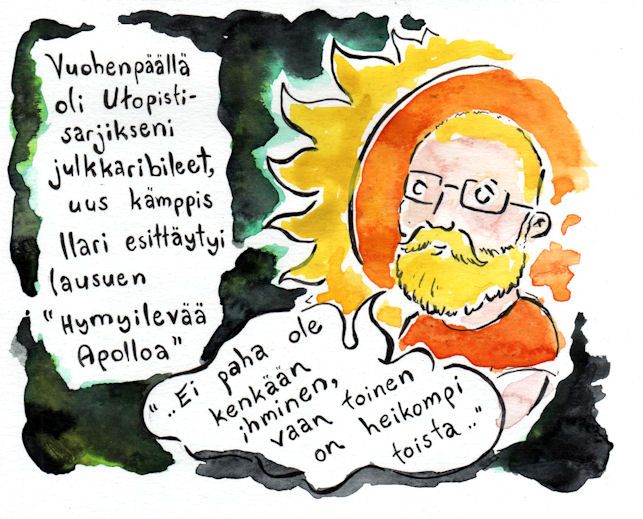 Vuohenpäällä
oli Utopisti-
sarjikseni
julkkaribileet,
uus kämppis
Ilari esittäytyi
lausuen
"Hymyilevää
Apolloa"
"..Ei paha ole
kenkään
ihminen,
vaan toinen
on heikompi
toista.."